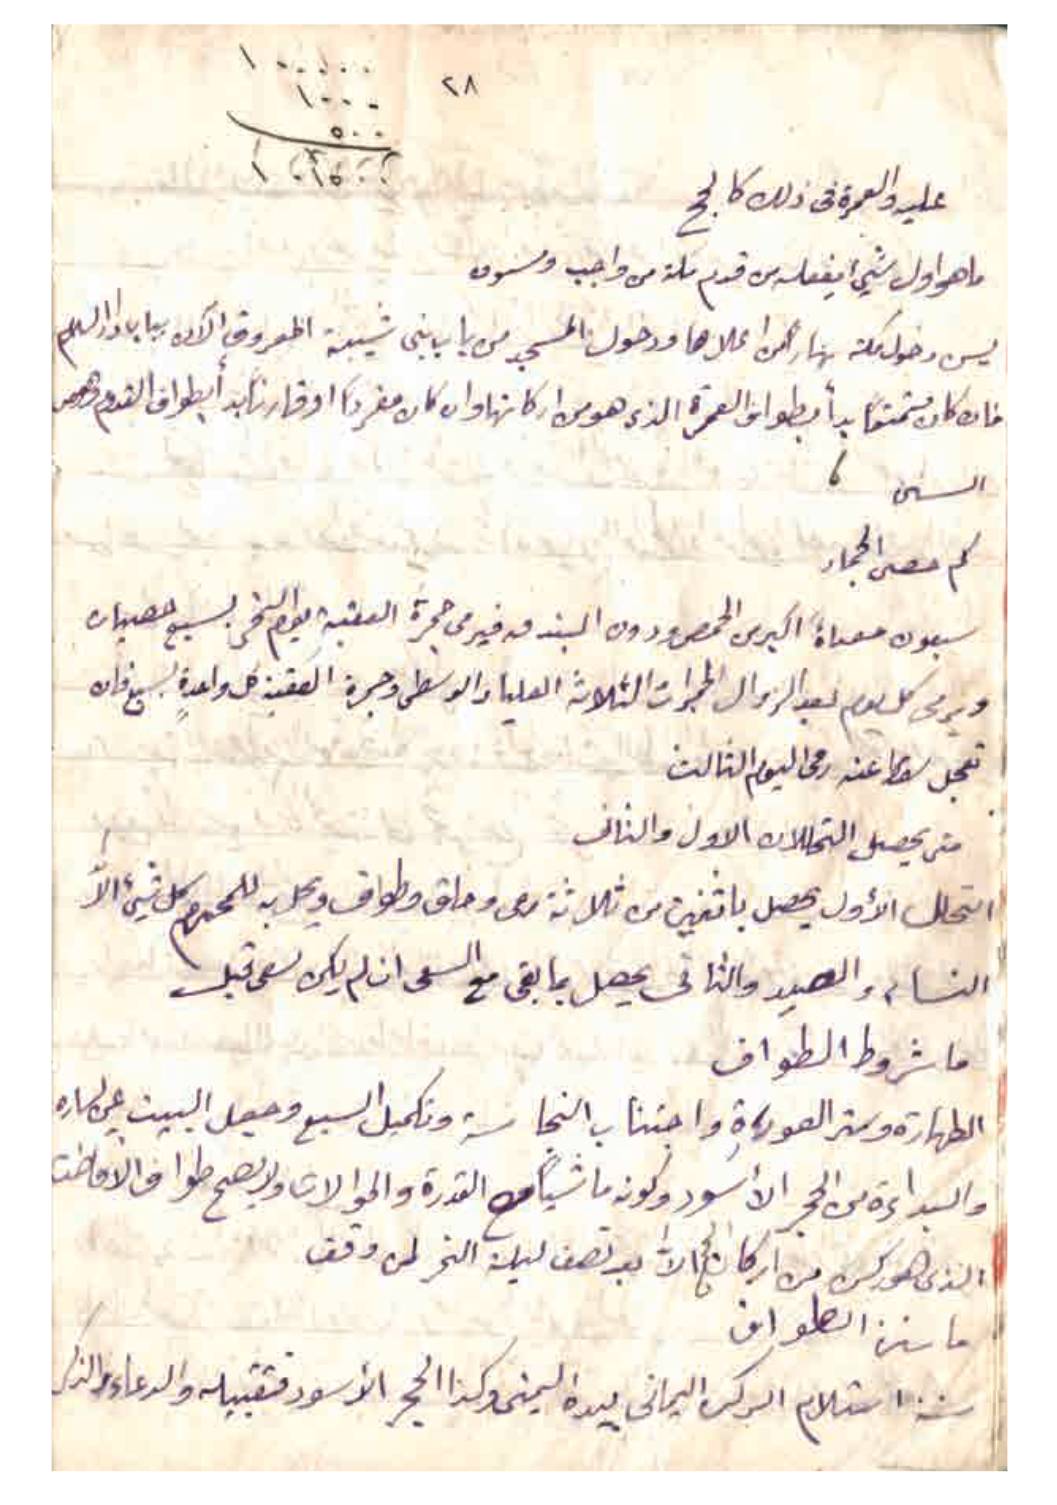 ١٠٠٠٠٠
١٠٠٠
٥٠٠
١٠١٥٠٠
٢٨
عليه والعمرة في ذلك كالحج
ما هو اول شيئ يفعله من قدم مكة من واجب ومسنون
يسن دخول مكة نهارا من اعلاها ودخول المسجد من باب بني شيبة المعروف الآن بباب السلام
فان كان متمتعاً بدأ بطواف العمرة الذي هو من اركانها وان كان مفرداً او قارناً بدأ بطواف القدوم وهو من
السنن
كم حصى الجمار
سبعون حصاة اكبر من الحمص ودون البندقه فيرمي جمرة العقبة يوم النحر بسبع حصيات
ويرمي كل يوم بعد الزوال الجمرات الثلاثة العليا والوسطى وجمرة العقبة كل واحدةٍ بسبع فان
تعجل سقط عنه رمي اليوم الثالث
متى يحصل التحللان الاول والثاني
التحلل الأول يحصل باثنين من ثلاثة رمى وحلق وطواف ويحل به للمحرم كل شيئ الاّ
النساء والصيد والثاني يحصل بما بقى مع السعى ان لم يكن سعى قبل
ما شروط الطواف
الطهارة وستر العورةِ واجتناب النجاسة وتكميل السبع وجعل البيت عن يساره
والبداءة من الحجر الأسود وكونه ماشياً مع القدرة والموالات ولا يصح طواف الأفاضت
الذي هو ركن من اركان الحج الاّ بعد نصف ليلة النحر لمن وقف
ما سنن الطواف
سنة استلام الركن اليماني بيده اليمنى وكذا الحجر الأسود فتقبيله والدعاء والذكر